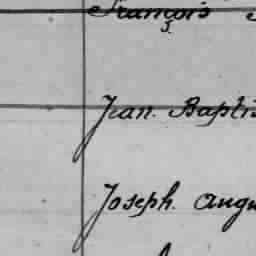 François
Jean. Baptis
Joseph. Augu